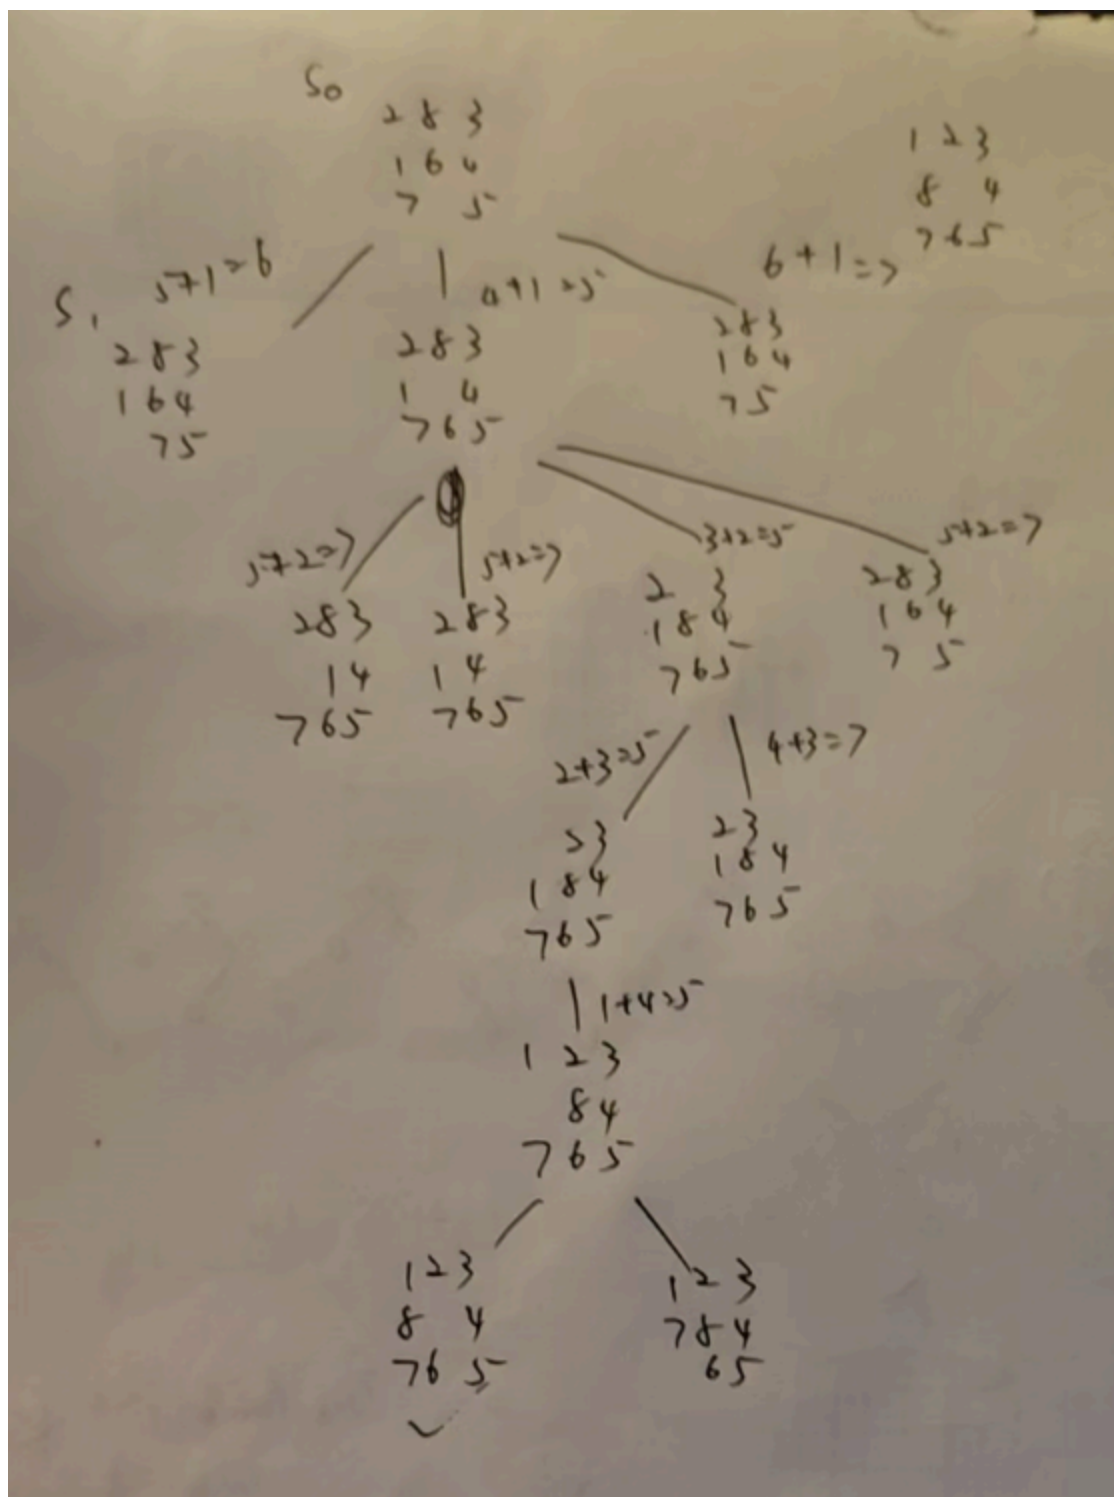 S0
2 8 3
1 6 4
7 5
1 2 3
8 4
7 6 5
5+1=6
4+1=5
6+1=7
S1
2 8 3
1 6 4
7 5
2 8 3
1 4
7 6 5
2 8 3
1 6 4
7 5
5+2=7
5+2=7
3+2=5
5+2=7
2 8 3
1 4
7 6 5
2 8 3
1 4
7 6 5
2 3
1 8 4
7 6 5
2 8 3
1 6 4
7 5
2+3=5
4+3=7
2 3
1 8 4
7 6 5
2 3
1 8 4
7 6 5
1+4=5
1 2 3
8 4
7 6 5
1 2 3
8 4
7 6 5
1 2 3
7 8 4
6 5